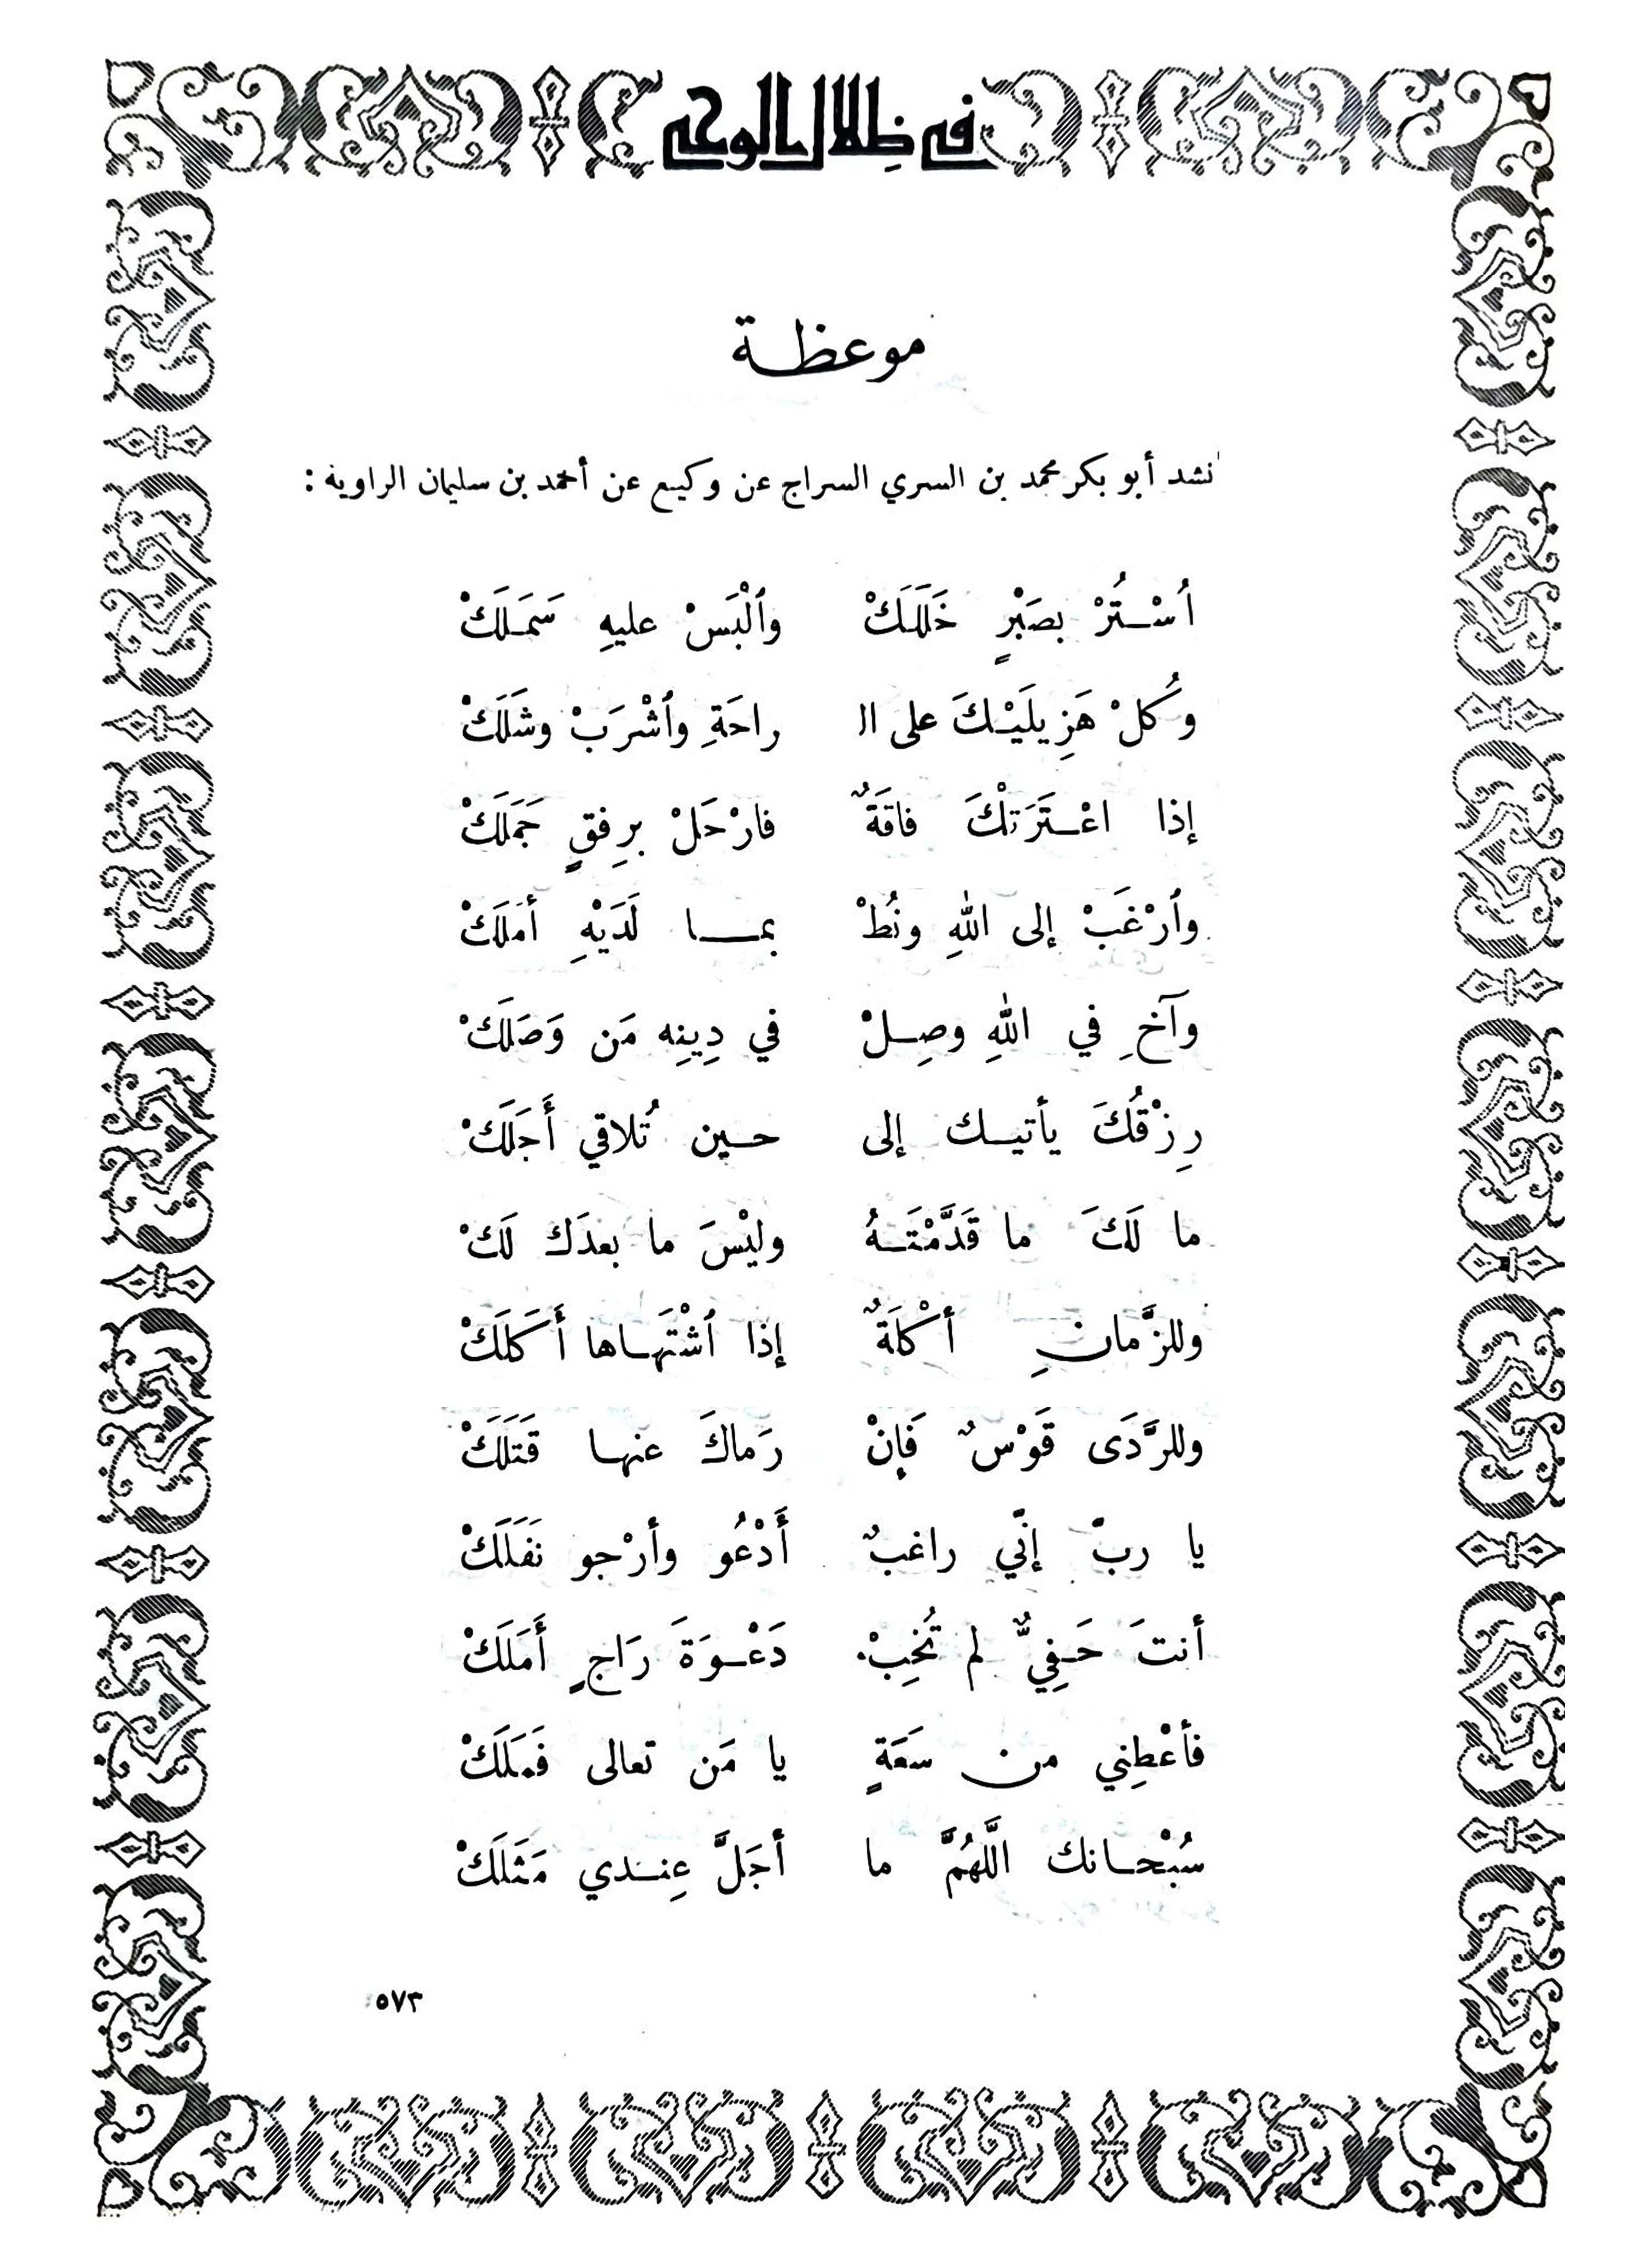 في ظلال الوحي
موعظة
أنشد أبو بكر محمد بن السري السراج عن وكيع عن أحمد بن سليمان الراوية :
اُسْتُرْ بصَبْرٍ خَلَلَكْ وٱلْبَسْ عليهِ سَمَلَكْ
وكُلْ هَزِيلَيْكَ على الـ راحَةِ وٱشْرَبْ وشَلَكْ
إذا اعْتَرَتْكَ فاقَةٌ فارْحَلْ برِفقٍ جَمَلَكْ
وٱرْغَبْ إلى اللهِ ونُطْ بما لَدَيْهِ أمَلَكْ
وآخِ في اللهِ وصِلْ في دِينِه مَن وَصَلَكْ
رِزْقُكَ يأتيك إلى حين تُلاقي أَجَلَكْ
ما لَكَ ما قَدَّمْتَهُ وليْسَ ما بعدَك لَكْ
وللزَّمانِ أكْلَةٌ إذا ٱشْتَهاها أَكَلَكْ
وللرَّدَى قَوْسٌ فَإنْ رَماكَ عنها قَتَلَكْ
يا ربّ إنّي راغبٌ أَدْعُو وأرْجو نَفَلَكْ
أنتَ حَفِيٌّ لم تُخِبْ دَعْوَةَ رَاجٍ أَمَلَكْ
فأعْطِني من سَعَةٍ يا مَن تعالى فَمَلَكْ
سُبْحانك اللَّهُمَّ ما أجَلَّ عِندي مَثَلَكْ
٥٧٣